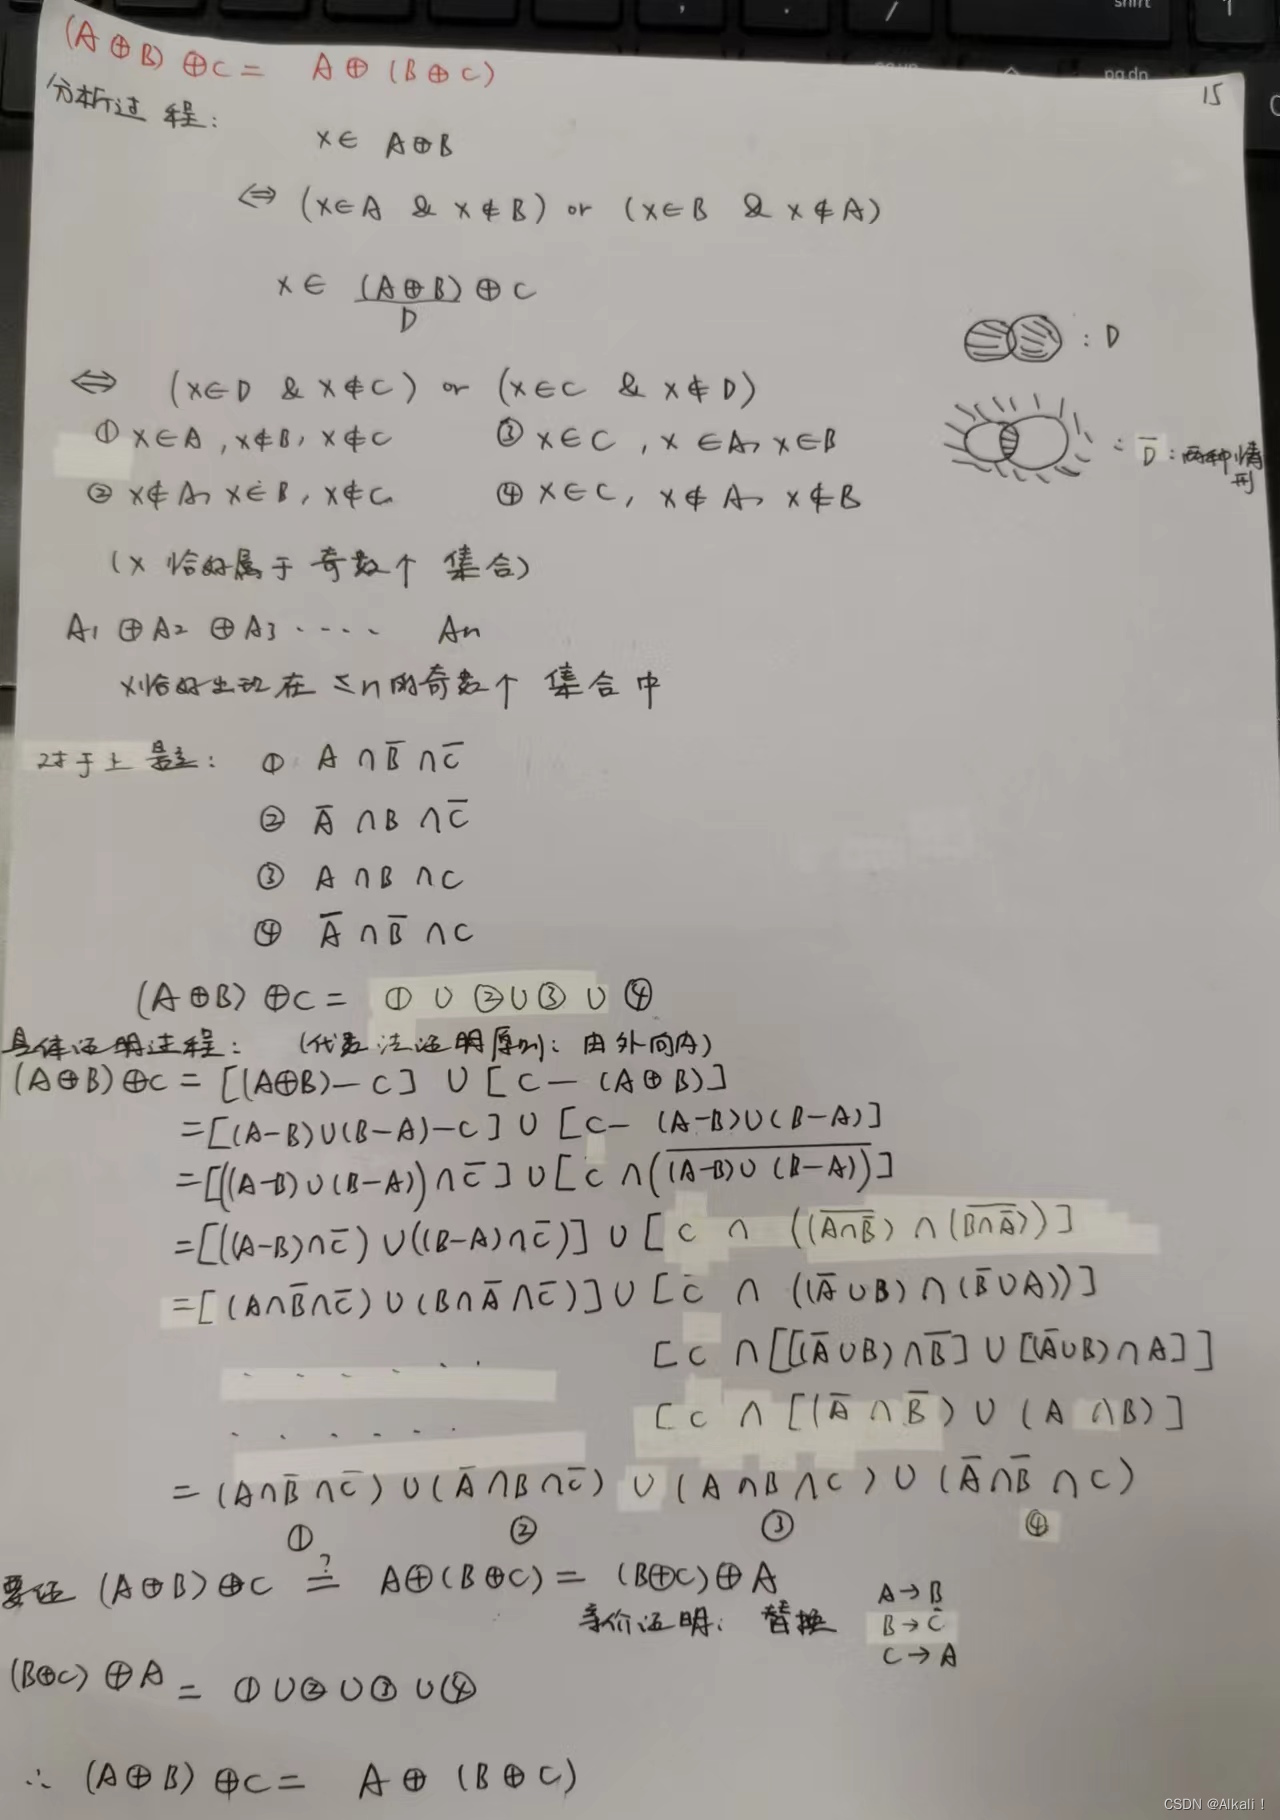 (A⊕B)⊕C = A⊕(B⊕C)
15
分析过程:
x∈ A⊕B
⇔ (x∈A & x∉B) or (x∈B & x∉A)
x∈ (A⊕B)⊕C
D
: D
⇔ (x∈D & x∉C) or (x∈C & x∉D)
① x∈A, x∉B, x∉C ③ x∈C, x∈A, x∈B
: D̅: 两种情形
② x∉A, x∈B, x∉C ④ x∈C, x∉A, x∉B
(x 恰好属于 奇数个 集合)
A1 ⊕A2 ⊕A3 ···· An
x恰好出现在 ≤n的奇数个 集合中
对于上题: ① A ∩ B̅ ∩ C̅
② A̅ ∩ B ∩ C̅
③ A ∩ B ∩ C
④ A̅ ∩ B̅ ∩ C
(A⊕B)⊕C = ① ∪ ② ∪ ③ ∪ ④
具体证明过程: (代数法证明原则: 由外向内)
(A⊕B)⊕C = [(A⊕B)−C] ∪ [C−(A⊕B)]
=[(A−B)∪(B−A)−C] ∪ [C− (A−B)∪(B−A)]
=[((A−B)∪(B−A))∩C̅] ∪ [C ∩(\overline{(A−B)∪(B−A)})]
=[((A−B)∩C̅) ∪((B−A)∩C̅)] ∪ [C ∩ ((\overline{A∩B̅}) ∩ (\overline{B∩A̅}))]
=[(A∩B̅∩C̅) ∪ (B∩A̅∩C̅)] ∪ [C ∩ ((A̅∪B) ∩ (B̅∪A))]
· · · · · · [C ∩ [[(A̅∪B)∩B̅] ∪ [(A̅∪B)∩A]]
· · · · · · [C ∩ [(A̅ ∩ B̅) ∪ (A ∩B)]
= (A∩B̅∩C̅) ∪ (A̅∩B∩C̅) ∪ (A∩B∩C) ∪ (A̅∩B̅∩C)
① ② ③ ④
要证 (A⊕B)⊕C ≟ A⊕(B⊕C) = (B⊕C)⊕A
等价证明: 替换
A→B
B→C
C→A
(B⊕C)⊕A = ①∪②∪③∪④
∴ (A⊕B)⊕C = A⊕(B⊕C)
CSDN @Alkali！